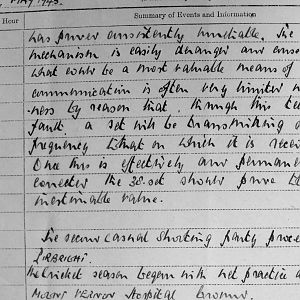 MAY 1943.
Hour Summary of Events and Information
has proven consistently unreliable. The
mechanism is easily deranged and
what could be a most valuable means of
communication is often very limited
ness by reason that, through this
fault, a set will be transmitting
frequency to that on which it is
Once this is effectively and
corrected the 38 set should prove
inestimable value.
The second casual shooting party
PIRBRIGHT.
The Cricket season began with net practice
MOUNT VERNON Hospital ground.